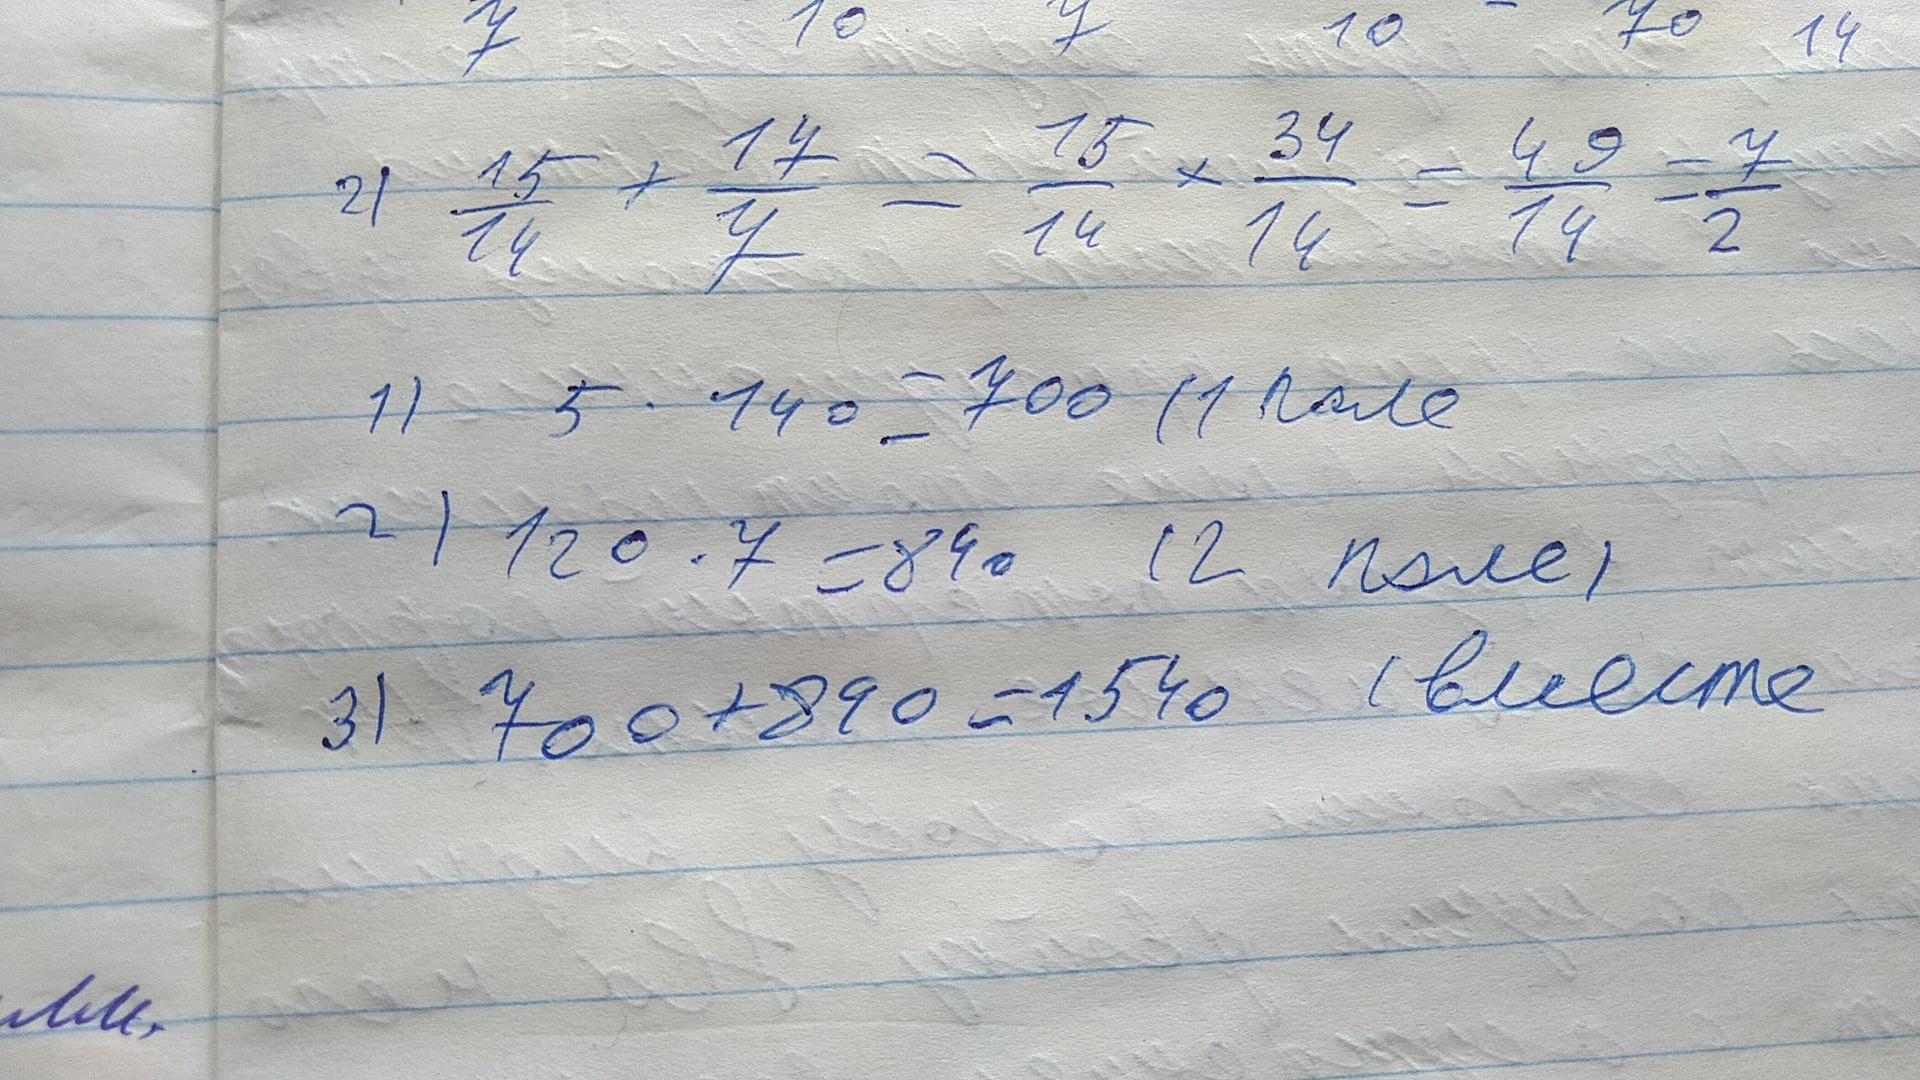 7 10 7 10 = 70 14
2) 15/14 + 17/7 = 15/14 + 34/14 = 49/14 = 7/2
1) 5 · 140 = 700 (1 поле
2) 120 · 7 = 840 (2 поле)
3) 700 + 840 = 1540 (вместе